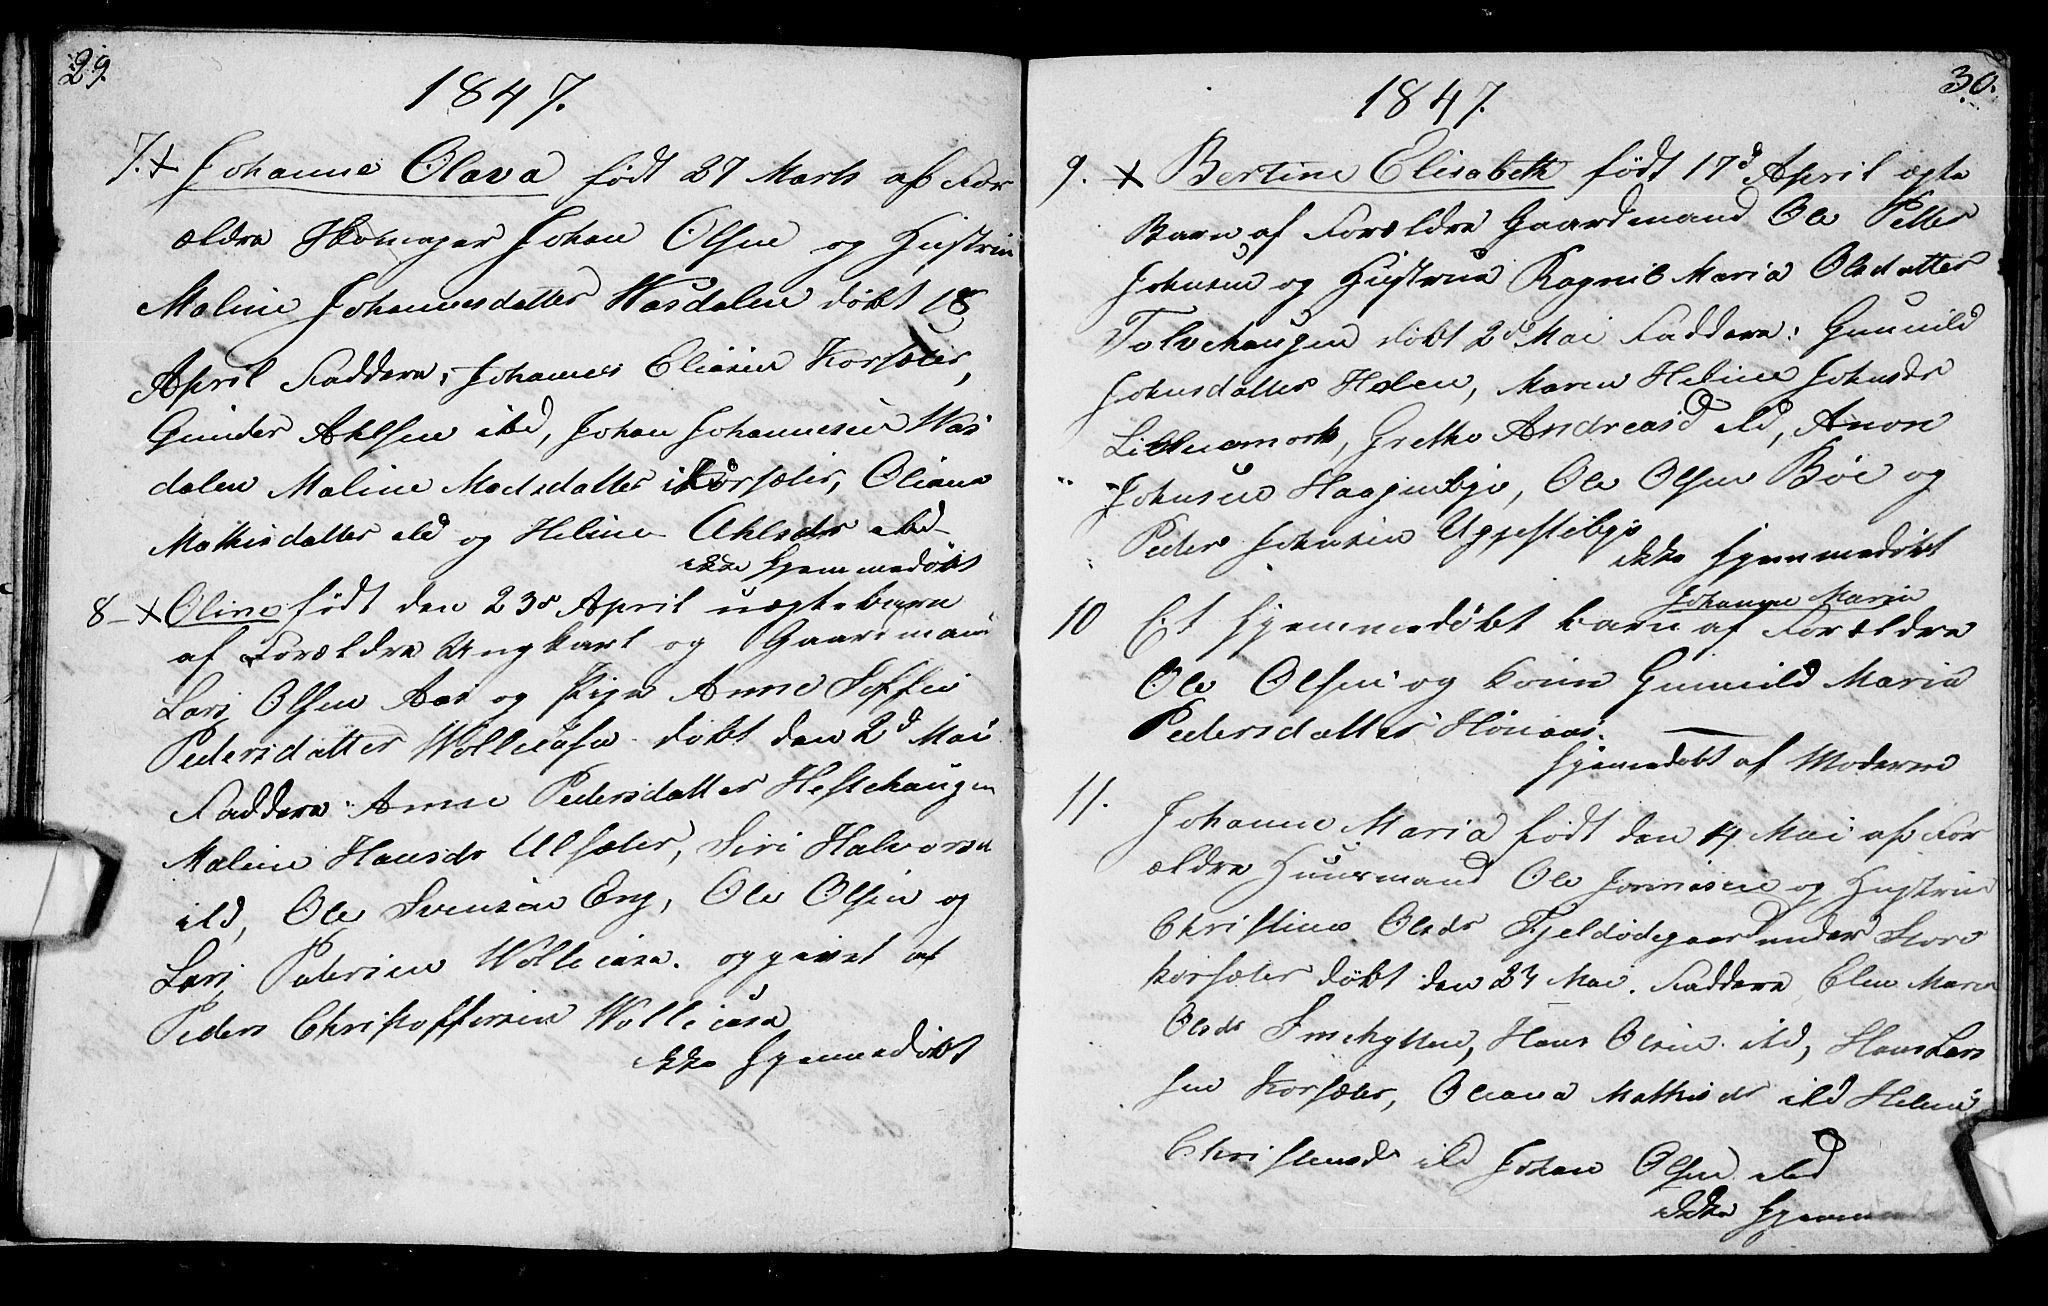 29.
1847.
7. + Johanne Olava født 27 Marts af For
ældre Skomager Johan Olsen og Hustrue
Maline Johannesdatter Wasdalen døbt 18
April Faddere, Johannes Eliasen Korsæter,
Gunder Ahlsen ibd, Johan Johannesen Was
dalen Maline Madsdatter Korsæter, Oliana
Mathisdatter ibd og Heline Ahlsdr ibd
ikke Hjemmedøbt
8 - + Oline født den 23de April uægte barn
af Forældre Ungkarl og Gaardmand
Lars Olsen Aas og Pige Anne Soffie
Pedersdatter Wollesasa døbt den 2d Mai
Faddere: Anne Pedersdatter Heftehaugen
Maline Hansdr Ulsæter, Siri Halvorsd
ibd, Ole Svensen Eng, Ole Olsen og
Lars Petersen opgivet af
Peders Christoffersen
ikke Hjemmedøbt
30.
1847.
9. + Bertine Elisabeth født 17d April ægte
Barn af Forældre Gaardmand Ole Petter
Johnsen og Hustrue Ragnil Maria Olsdatter
Tolvehaugen døbt 2de Mai Faddere: Gunnild
Johnsdatter Holen, Maren Heline Johnsdr
Grethe Andreasd ibd, Anon
Johnsen Haagenbye, Ole Olsen Böe og
Peder Johnsen
ikke Hjemmedøbt
Johanne Maria
10 Et Hjemmedøbt barn af Forældre
Ole Olsen og kone Gunnild Maria
Pedersdatter Hönaas.
Hjemedøbt af Moderen
11. Johanne Maria født den 14 Mai af For
ældre Huusmand Ole Jonnesen og Hustrue
Christine Olsdr Fjeldødegaard under Store
korsæter døbt den 24 Mai. Faddere Elen Maria
Olsdr Smehytten, Hans Olsen ibd, Hans Lars
sen Korsæter, Oliana Mathisdr ibd Heline
Christensdr ibd Johan Olsen ibd
ikke Hjemme